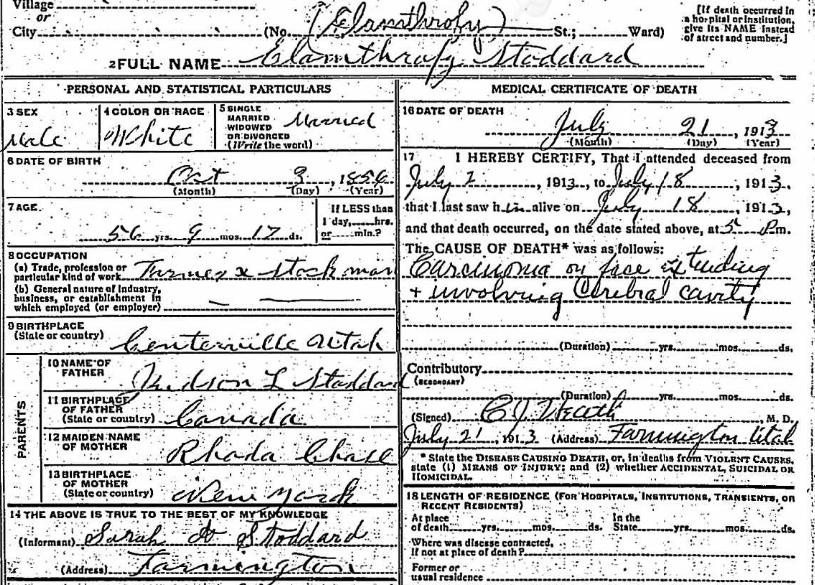 Village
or
City (No. (Elamthrofy) St.; Ward)
[If death occurred in
a hospital or institution,
give its NAME instead
of street and number.]
2 FULL NAME Elamthrofy Stoddard
PERSONAL AND STATISTICAL PARTICULARS
3 SEX
Male
4 COLOR OR RACE
White
5 SINGLE
MARRIED
WIDOWED
OR DIVORCED
(Write the word)
Married
6 DATE OF BIRTH
Oct 3, 1856
(Month) (Day) (Year)
7 AGE
56 yrs. 9 mos. 17 ds.
If LESS than
1 day, hrs.
or min.?
8 OCCUPATION
(a) Trade, profession or
particular kind of work Farmer & Stockman
(b) General nature of industry,
business, or establishment in
which employed (or employer)
9 BIRTHPLACE
(State or country)
Centerville Utah
PARENTS
10 NAME OF
FATHER
Judson L Stoddard
11 BIRTHPLACE
OF FATHER
(State or country) Canada
12 MAIDEN NAME
OF MOTHER
Rhoda Chase
13 BIRTHPLACE
OF MOTHER
(State or country)
14 THE ABOVE IS TRUE TO THE BEST OF MY KNOWLEDGE
(Informant) Sarah Stoddard
(Address) Farmington
MEDICAL CERTIFICATE OF DEATH
16 DATE OF DEATH
July 21, 1913
(Month) (Day) (Year)
17 I HEREBY CERTIFY, That I attended deceased from
July 2, 1913, to July 18, 1913,
that I last saw him alive on July 18, 1913,
and that death occurred, on the date stated above, at 5 P m.
The CAUSE OF DEATH* was as follows:
Carcinoma on face extending
+ involving Cerebral cavity
(Duration) yrs. mos. ds.
Contributory
(SECONDARY)
(Duration) yrs. mos. ds.
(Signed) M. D.
July 21, 1913 (Address) Farmington Utah
* State the DISEASE CAUSING DEATH, or, in deaths from VIOLENT CAUSES,
state (1) MEANS OF INJURY; and (2) whether ACCIDENTAL, SUICIDAL OR
HOMICIDAL.
18 LENGTH OF RESIDENCE (FOR HOSPITALS, INSTITUTIONS, TRANSIENTS, OR
RECENT RESIDENTS)
At place
of death yrs. mos. ds.
In the
State yrs. mos. ds.
Where was disease contracted,
if not at place of death?
Former or
usual residence